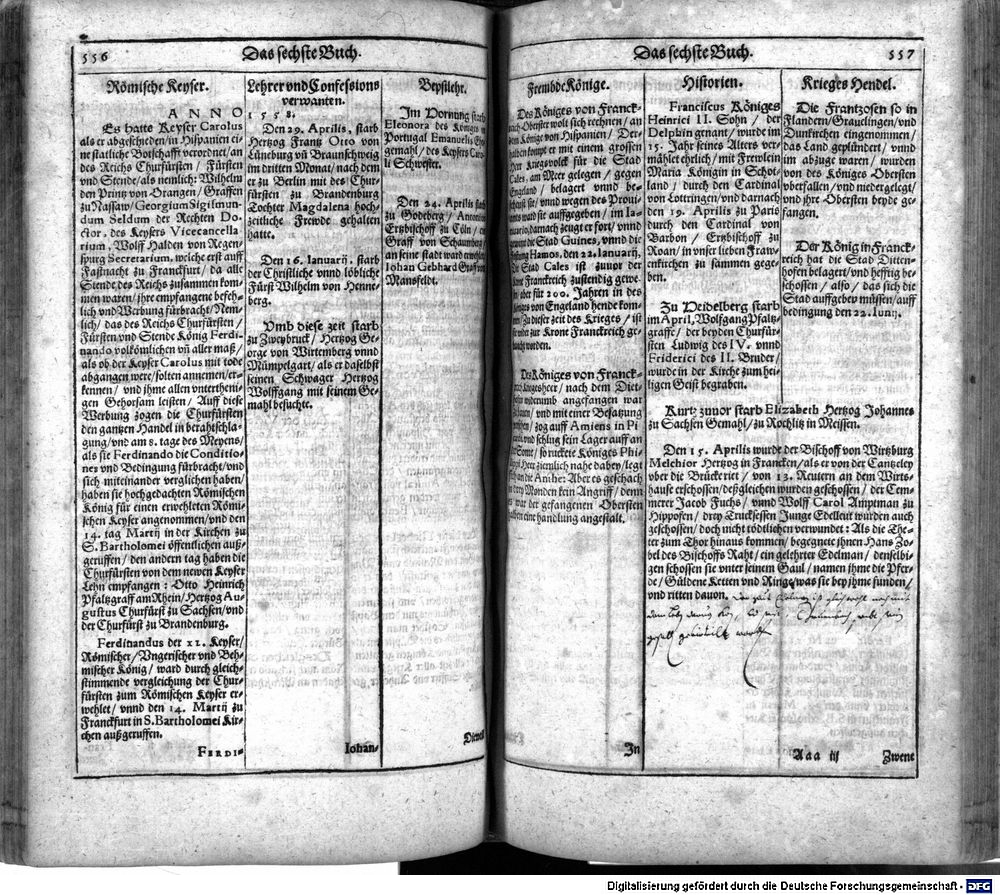 556
Das sechste Buch.
Römische Keyser.
ANNO
Es hatte Keyser Carolus
als er abgescheiden / in Hispanien ei-
ne statliche Botschafft verordnet / an
des Reichs Churfürsten / Fürsten
und Stende / als nemlich: Wilhelm
den Printz von Brangen / Graffen
zu Nassaw / Georgium Sigismun-
dum Seldum der Rechten Do-
ctor, des Keysers Vicecancella-
rium, Wolff Halden von Regen-
spurg Secretarium, welche erst auff
Fastnacht zu Franckfurt / da alle
Stende des Reichs zusammen kom-
men waren / ihre empfangene befeh-
lich und Werbung fürbracht / Nem-
lich / das des Reichs Churfürsten /
Fürsten und Stende König Ferdi-
nando volkömlichen uñ aller maß /
als ob der Keyser Carolus mit tode
abgangen were / solten annemen / er-
kennen / und ihme allen unterthenì-
gen Gehorsam leisten / Auff diese
Werbung zogen die Churfürsten
den gantzen Handel in berahtschla-
gung / und am 8. tage des Meyens /
als sie Ferdinando die Conditio-
nes und Bedingung fürbracht / und
sich miteinander verglichen haben /
haben sie hochgedachten Römischen
König für einen erwehleten Römi-
schen Keyser angenommen / und den
14. tag Martij in der Kirchen zu
S. Bartholomei öffentlichen auß-
geruffen / den andern tag haben die
Churfürsten von dem newen Keyser
Lehn empfangen : Otto Heinrich
Pfaltzgraff am Rhein / Hertzog Au-
gustus Churfürst zu Sachsen / und
der Churfürst zu Brandenburg.
Ferdinandus der 11. Keyser /
Römischer / Ungerischer und Beh-
mischer König / ward durch gleich-
stimmende vergleichung der Chur-
fürsten zum Römischen Keyser er-
wehlet / unnd den 14. Martij zu
Franckfurt in S. Bartholomei Kir-
chen außgeruffen.
FERDI-
Lehrer und Confessions
verwanten.
1558.
Den 29. Aprilis, starb
Hertzog Frantz Otto von
Lüneburg uñ Braunschweig
im dritten Monat / nach dem
er zu Berlin mit des Chur-
fürsten zu Brandenburg
Tochter Magdalena hoch-
zeitliche Frewde gehalten
hatte.
Den 16. Ianuarij, starb
der Christliche unnd löbliche
Fürst Wilhelm von Henne-
berg.
Umb diese zeit starb
zu Zweybruck / Hertzog Ge-
orge von Wirtemberg unnd
Mümpelgart / als er daselbst
seinen Schwager Hertzog
Wolffgang mit seinem Ge-
mahl besuchte.
Iohan-
Bepstlehr.
Im Hornung starb
Eleonora des Königs in
Portugal Emanuelis Ehe-
gemahl / des Keysers Caro-
li Schwester.
Den 24. Aprilis starb
zu Godeberg / Antonius
Ertzbischoff zu Cöln /
Graff von Schaumberg
an seine stadt ward erwehlet
Iohan Gebhard Graff von
Mansfeldt.
Dieweil
557
Das sechste Buch.
Frembde Könige.
Des Königes von Franck-
Oberster wolt sich rechnen / an
dem Könige von Hispanien / Der-
halben kompt er mit einem grossen
Heer Kriegsvolck für die Stad
Cales, am Meer gelegen / gegen
Engeland / belagert unnd be-
schoß sie / unnd wegen des Provi-
ants ward sie auffgegeben / im Ia-
nuario, darnach zeugt er fort / unnd
gewint die Stad Guines, unnd die
Festung Hamos, den 22. Ianuarij,
Die Stad Cales ist zuvor der
Krone Franckreich zustendig gewe-
sen / aber für 200. Jahren in des
Königes von Engeland hende kom-
men / Zu dieser zeit des Krieges / ist
sie wieder zur Krone Franckreich ge-
bracht worden.
Des Königes von Franck-
reich Kriegsheer / nach dem Diet-
hofen widerumb angefangen war
zu bauen / und mit einer Besatzung
/ zog auff Amiens in Pi-
cardi und schlug sein Lager auff an
der Some / so ruckete Königes Phi-
lippi Heer ziemlich nahe dabey / legt
sich an die Anthe: Aber es geschach
in drey Monden kein Angriff / denn
es war der gefangenen Obersten
halben eine handlung angestalt.
In
Historien.
Franciscus Königes
Heinrici II. Sohn / der
Delphin genant / wurde im
15. Jahr seines Alters ver-
mählet ehrlich / mit Frewlein
Maria Königin in Schot-
land / durch den Cardinal
von Lottringen / und darnach
den 19. Aprilis zu Paris
durch den Cardinal von
Barbon / Ertzbischoff zu
Roan / in unser lieben Fraw-
enkirchen zu sammen gege-
ben.
Zu Heidelberg starb
im April, Wolfgang Pfaltz-
graffe / der beyden Churfür-
sten Ludwig des IV. unnd
Friderici des II. Bruder /
wurde in der Kirche zum hei-
ligen Geist begraben.
Krieges Hendel.
Die Frantzosen so in
Flandern / Grauelingen / und
Dunkirchen eingenommen /
das Land geplündert / unnd
im abzuge waren / wurden
von des Königes Obersten
überfallen / und niedergelegt /
und ihre Obersten beyde ge-
fangen.
Der König in Franck-
reich hat die Stad Ditten-
hofen belagert / und hefftig be-
schossen / also / das sich die
Stad auffgeben müssen / auff
bedingung den 22. Iunij.
Kurtz zuvor starb Elizabeth Hertzog Johannes
zu Sachsen Gemahl / zu Rochlitz in Meissen.
Den 15. Aprilis wurde der Bischoff von Würtzburg
Melchior Hertzog in Francken / als er von der Cantzeley
über die Brücke riet / von 13. Reutern an dem Wirts-
hause erschossen / deßgleichen wurden geschossen / der Cem-
merer Jacob Fuchs / unnd Wolff Carol Amptman zu
Hipposen / drey Trucksessen Junge Edelleut wurden auch
geschossen / doch nicht tödtlichen verwundet : Als die The-
ter zum Thor hinaus kommen / begegnete ihnen Hans Zo-
bel des Bischoffs Raht / ein gelehrter Edelman / denselbi-
gen schossen sie unter seinem Gaul / namen ihme die Pfer-
de / Güldene Ketten und Ringe / was sie bey ihme funden /
und ritten davon.
Aaa iij
Zwene
Digitalisierung gefördert durch die Deutsche Forschungsgemeinschaft - DFG